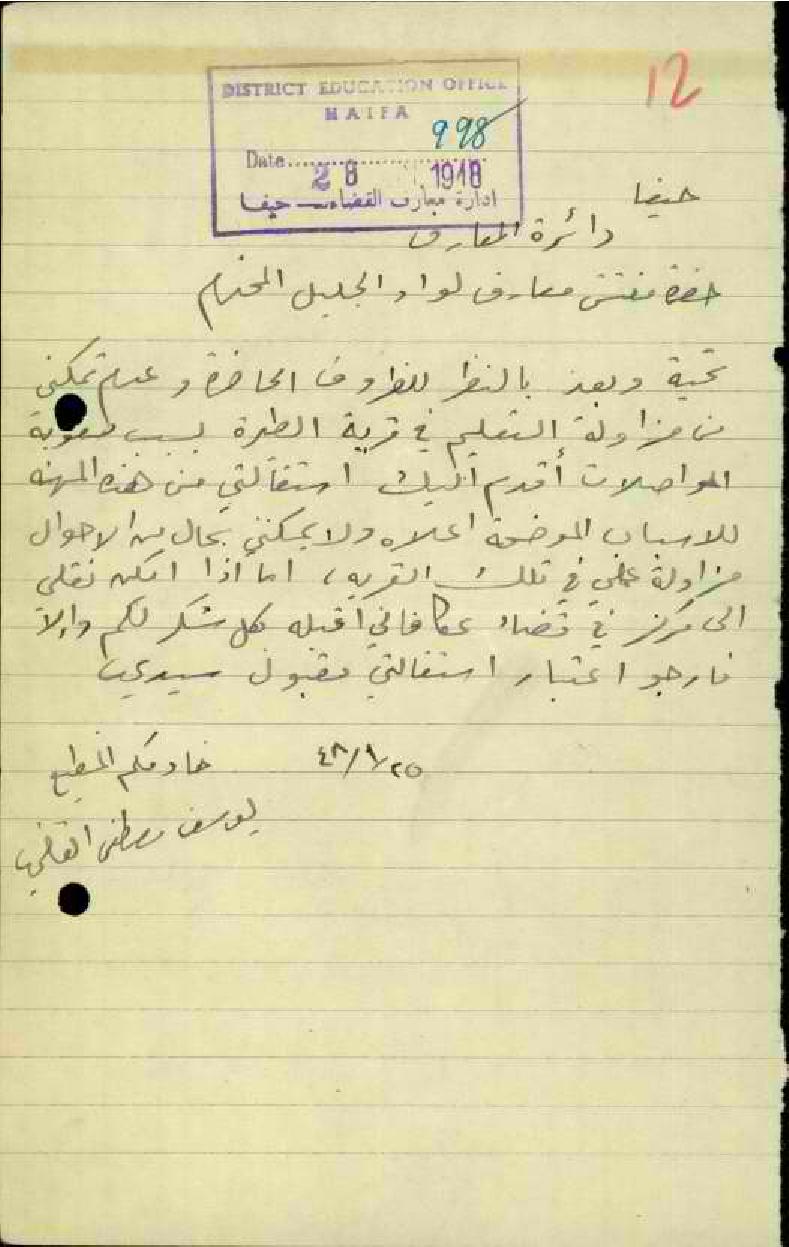 12
DISTRICT EDUCATION OFFICE
HAIFA
998
Date
28 1948
ادارة معارف القضاء حيفا
حيفا
دائرة المعارف
حضرة مفتش معارف لواء الجليل المحترم
تحية وبعد بالنظر للظروف الحاضرة وعدم تمكني
من مزاولة التعليم في قرية الطيرة بسبب صعوبة
المواصلات أقدم اليك استقالتي من هذه المهنه
للاسباب الموضحة اعلاه ولا يمكنني بحال من الاحوال
مزاولة عملي في تلك القريه، اما اذا امكن نقلي
الى مركز في قضاء عكا فاني اقبله بكل شكر لكم وإلا
فارجو اعتبار استقالتي مقبولة سيدي
٤٨/١/٢٥ خادمكم المطيع
يوسف مصطفى